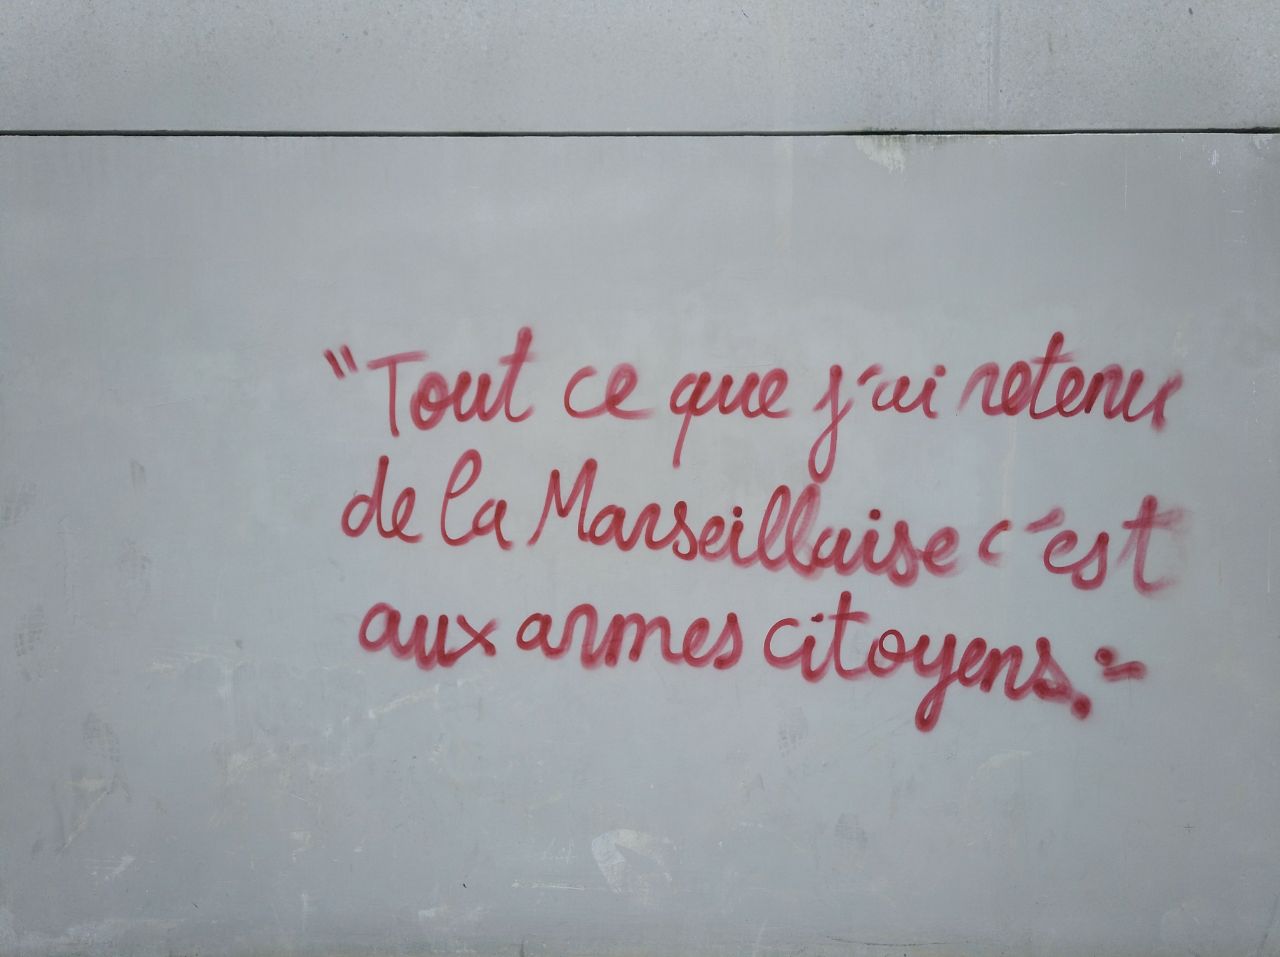 "Tout ce que j'ai retenu
de la Marseillaise c'est
aux armes citoyens."